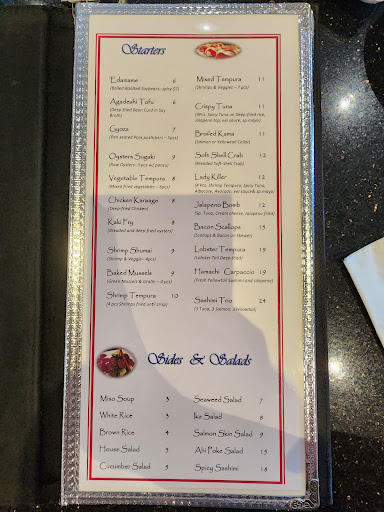 Starters
Edamame 6
(Boiled Boolited Soybeans- spicy $7)
Agadashi Tofu 6
(Deep fried Bean Curd in Soy
Broth)
Gyoza 7
(Pan seared Pork potstickers - 5pcs)
Oysters Sugaki 9
(Raw Oysters- 3 pcs w/ ponzu)
Vegetable Tempura 8
(Mixed fried vegetables – 8pcs)
Chicken Karaage 8
(Deep-fried Chicken)
Kaki Fry 8
(Breaded and deep fried oysters)
Shrimp Shumai 9
(Shrimp & Veggie- 4pcs)
Baked Mussels 9
(Green Mussels & Gratin – 4 pcs)
Shrimp Tempura 10
(4 pcs Shrimps fried until crisp)
Mixed Tempura 11
(Shrimps & Veggies – 7 pcs)
Crispy Tuna 11
(4Pcs. Spicy Tuna on Deep-fried rice,
Jalapeno top, eel sauce, sp mayo)
Broiled Kama 11
(Salmon or Yellowtail Collar)
Soft Shell Crab 12
(Breaded Soft-Shell Crab)
Lady Killer 12
(4 Pcs, Shrimp Tempura, Spicy Tuna,
Albacore, Avocado, eel sauce, sp mayo)
Jalapeno Bomb 12
(Sp. Tuna, Cream cheese, Jalapeno fried)
Bacon Scallops 15
(Scallops & Bacon on Skewer)
Lobster Tempura 19
(Lobster Tail Deep-fried)
Hamachi Carpaccio 19
(Fresh Yellowtail Sashimi and Jalapeno)
Sashimi Trio 24
(3 Tuna, 3 Salmon, 3 Yellowtail)
Sides & Salads
Miso Soup 3
White Rice 3
Brown Rice 4
House Salad 5
Cucumber Salad 5
Seaweed Salad 7
Ika Salad 8
Salmon Skin Salad 9
Ahi Poke Salad 15
Spicy Sashimi 18